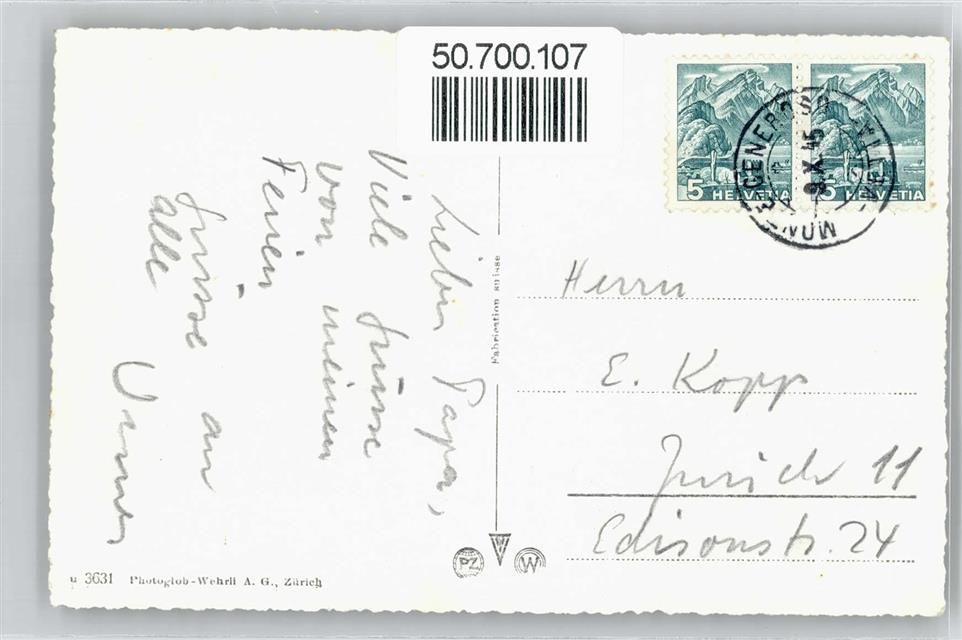 50.700.107
5 HELVETIA
5 HELVETIA
GENEROSO
9.X.45
Lieber Papa,
Viele Grüsse
von meinen
Ferien
Grüsse an
alle
Werner
Fabrication suisse
Herrn
E. Kopp
Zürich 11
Edisonstr. 24
PZ
W
u 3631 Photoglob-Wehrli A. G., Zürich